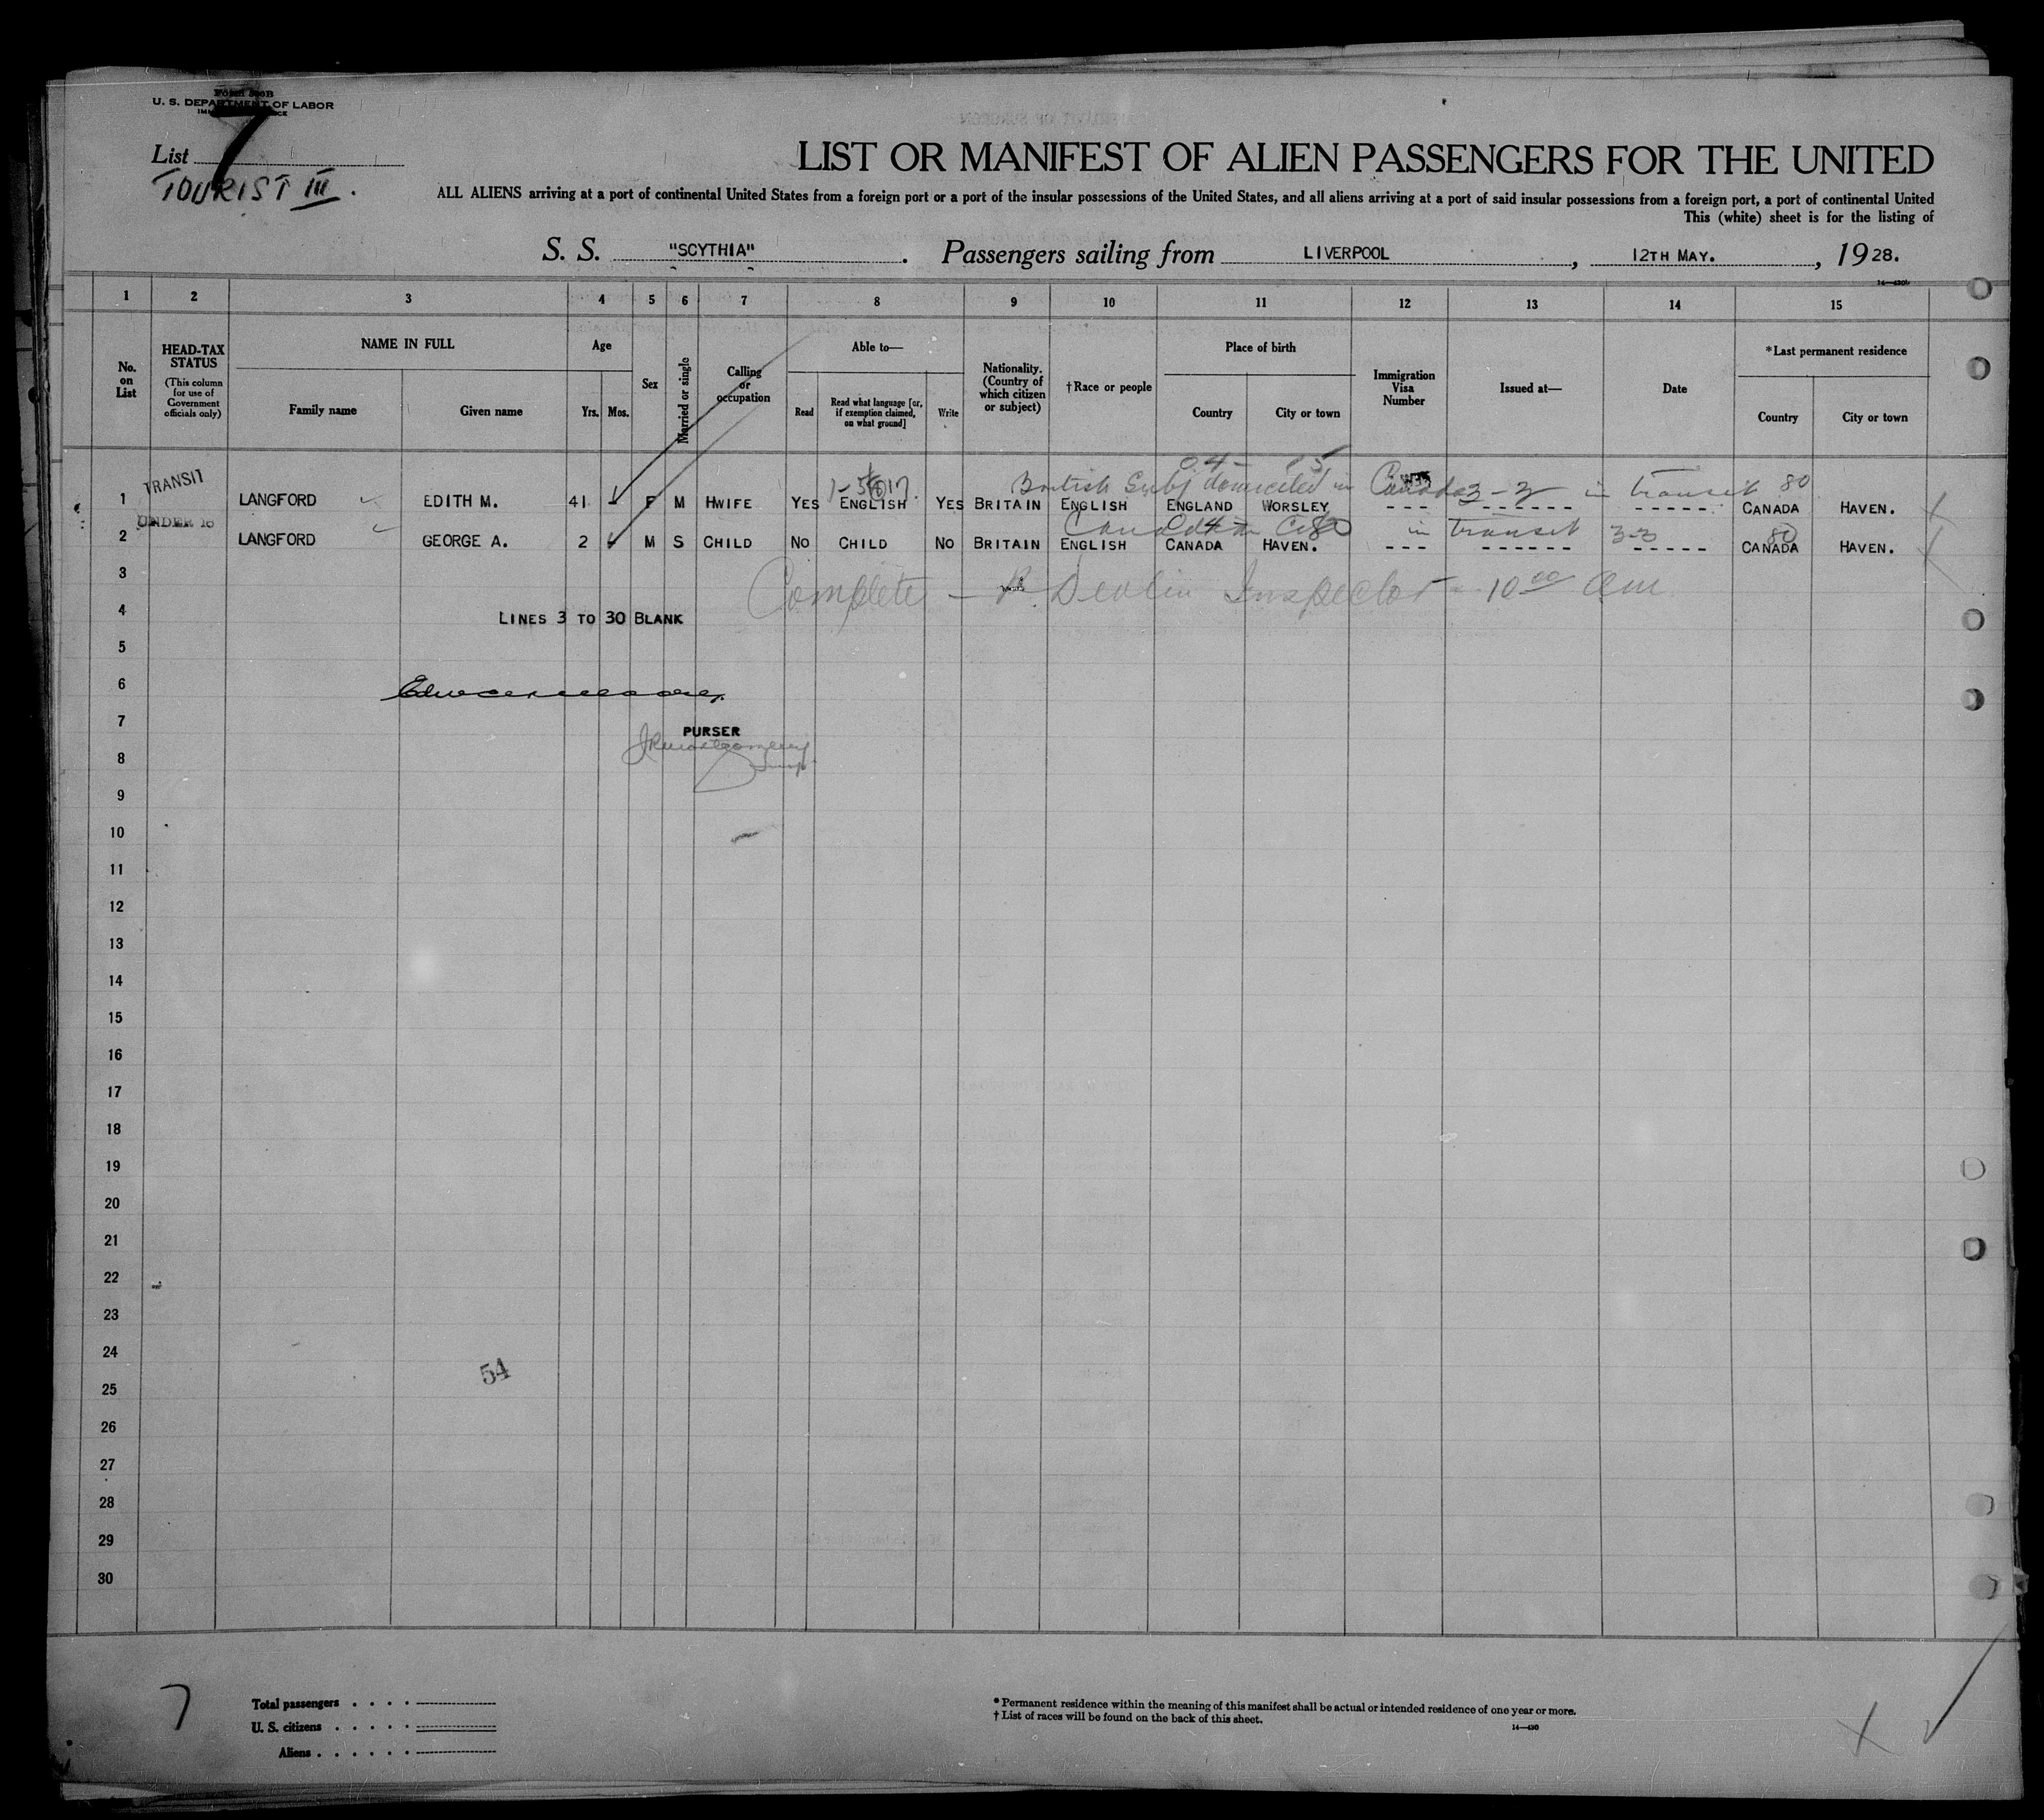 U. S. DEPARTMENT OF LABOR
List 7
TOURIST III.
LIST OR MANIFEST OF ALIEN PASSENGERS FOR THE UNITED
ALL ALIENS arriving at a port of continental United States from a foreign port or a port of the insular possessions of the United States, and all aliens arriving at a port of said insular possessions from a foreign port, a port of continental United
This (white) sheet is for the listing of
S. S. "SCYTHIA". Passengers sailing from LIVERPOOL, 12TH MAY., 1928.
1 2 3 4 5 6 7 8 9 10 11 12 13 14 15
No. on List
HEAD-TAX STATUS
(This column for use of Government officials only)
NAME IN FULL
Family name
Given name
Age
Yrs. Mos.
Sex
Married or single
Calling or occupation
Able to—
Read
Read what language [or, if exemption claimed, on what ground]
Write
Nationality. (Country of which citizen or subject)
†Race or people
Place of birth
Country
City or town
Immigration Visa Number
Issued at—
Date
*Last permanent residence
Country
City or town
British Subj domiciled in Canada 3-3 in transit 80
1 TRANSIT LANGFORD EDITH M. 41 F M HWIFE YES ENGLISH YES BRITAIN ENGLISH ENGLAND WORSLEY --- ------ ----- CANADA HAVEN.
in transit 3-3 80
2 UNDER 16 LANGFORD GEORGE A. 2 M S CHILD NO CHILD NO BRITAIN ENGLISH CANADA HAVEN. --- ------ ----- CANADA HAVEN.
3
Complete — P. Devlin Inspector - 10 00 am
4 LINES 3 TO 30 BLANK
5
6
7 PURSER
8
9
10
11
12
13
14
15
16
17
18
19
20
21
22
23
24
54
25
26
27
28
29
30
7
Total passengers . . . .
U. S. citizens . . . . .
Aliens . . . . . .
* Permanent residence within the meaning of this manifest shall be actual or intended residence of one year or more.
† List of races will be found on the back of this sheet.
14—430